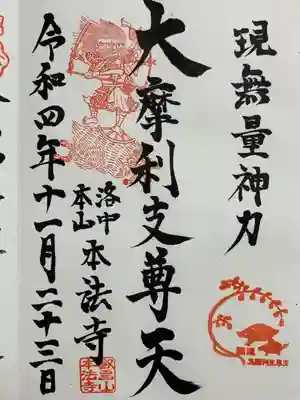 現無量神力
大摩利支尊天
洛中
本山
本法寺
令和四年十一月二十三日
叡昌山
本法寺